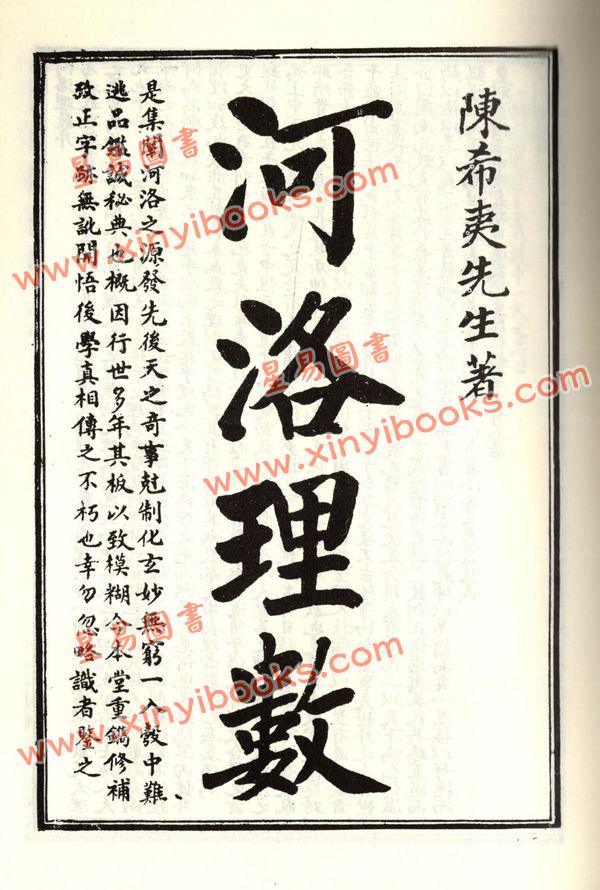 陳希夷先生著
河洛理數
是集闡河洛之源發先後天之奇事尅制化玄妙無窮一入彀中難
逃品鑑誠秘典也概因行世多年其板以致模糊今本堂重鐫修補
攷正字跡無訛開悟後學真相傳之不朽也幸勿忽略識者鑒之
星易圖書
www.xinyibooks.com
星易圖書
www.xinyibooks.com
星易圖書
www.xinyibooks.com
星易圖書
www.xinyibooks.com